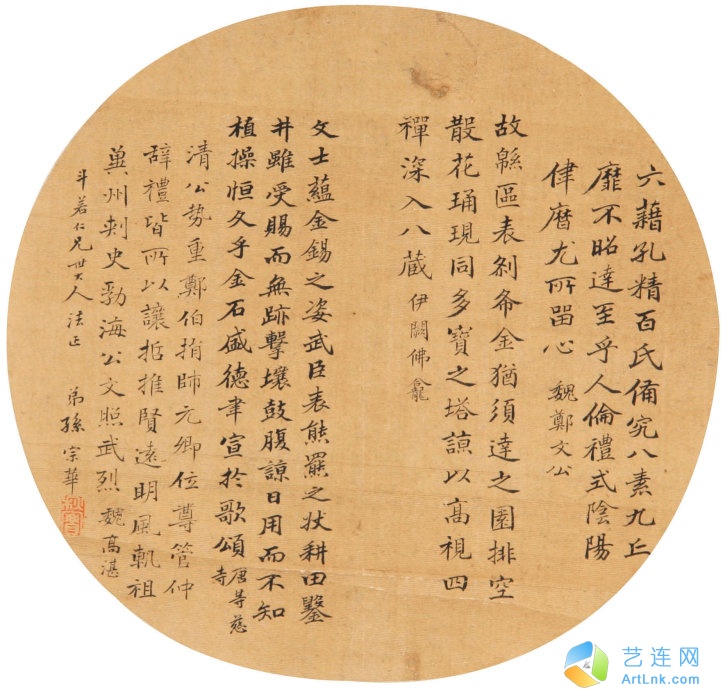 六藉孔精百氏備究八素九丘
靡不昭達至乎人倫禮式陰陽
律曆尤所留心 魏鄭文公
故緜區表剎希金猶須達之園排空
散花踊現同多寶之塔諒以高視四
禪深入八藏 伊闕佛龕
文士蘊金錫之姿武臣表熊羆之狀耕田鑿
井雖受賜而無跡擊壤鼓腹諒日用而不知
植操恒久乎金石盛德聿宣於歌頌 唐等慈寺
清公勢重鄭伯捐師元卿位尊管仲
辭禮皆所以讓哲推賢遠明風軌祖
冀州刺史勃海公文照武烈 魏高湛
斗若仁兄世大人法正 弟孫宗華
艺连网
ArtLnk.com